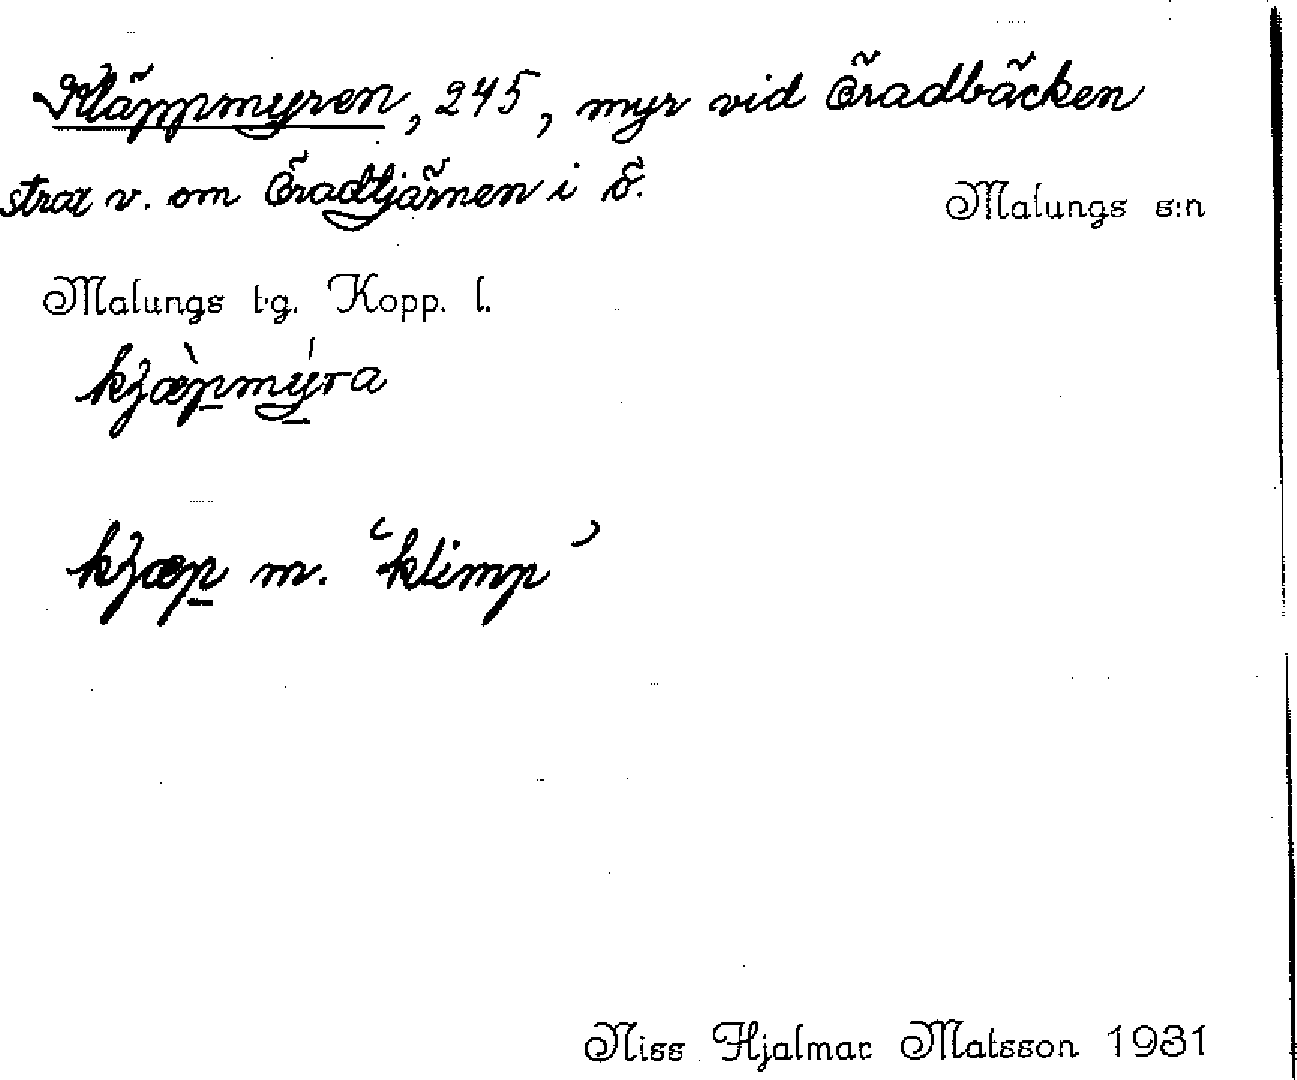 Kläppmyren, 245, myr vid Öradbäcken
strax v. om Öradtjärnen i ö.
Malungs s:n
Malungs t.g. Kopp. l.
kʒæ̀pmýra
kʒæp m. ‘klimp’
Niss Hjalmar Matsson 1931